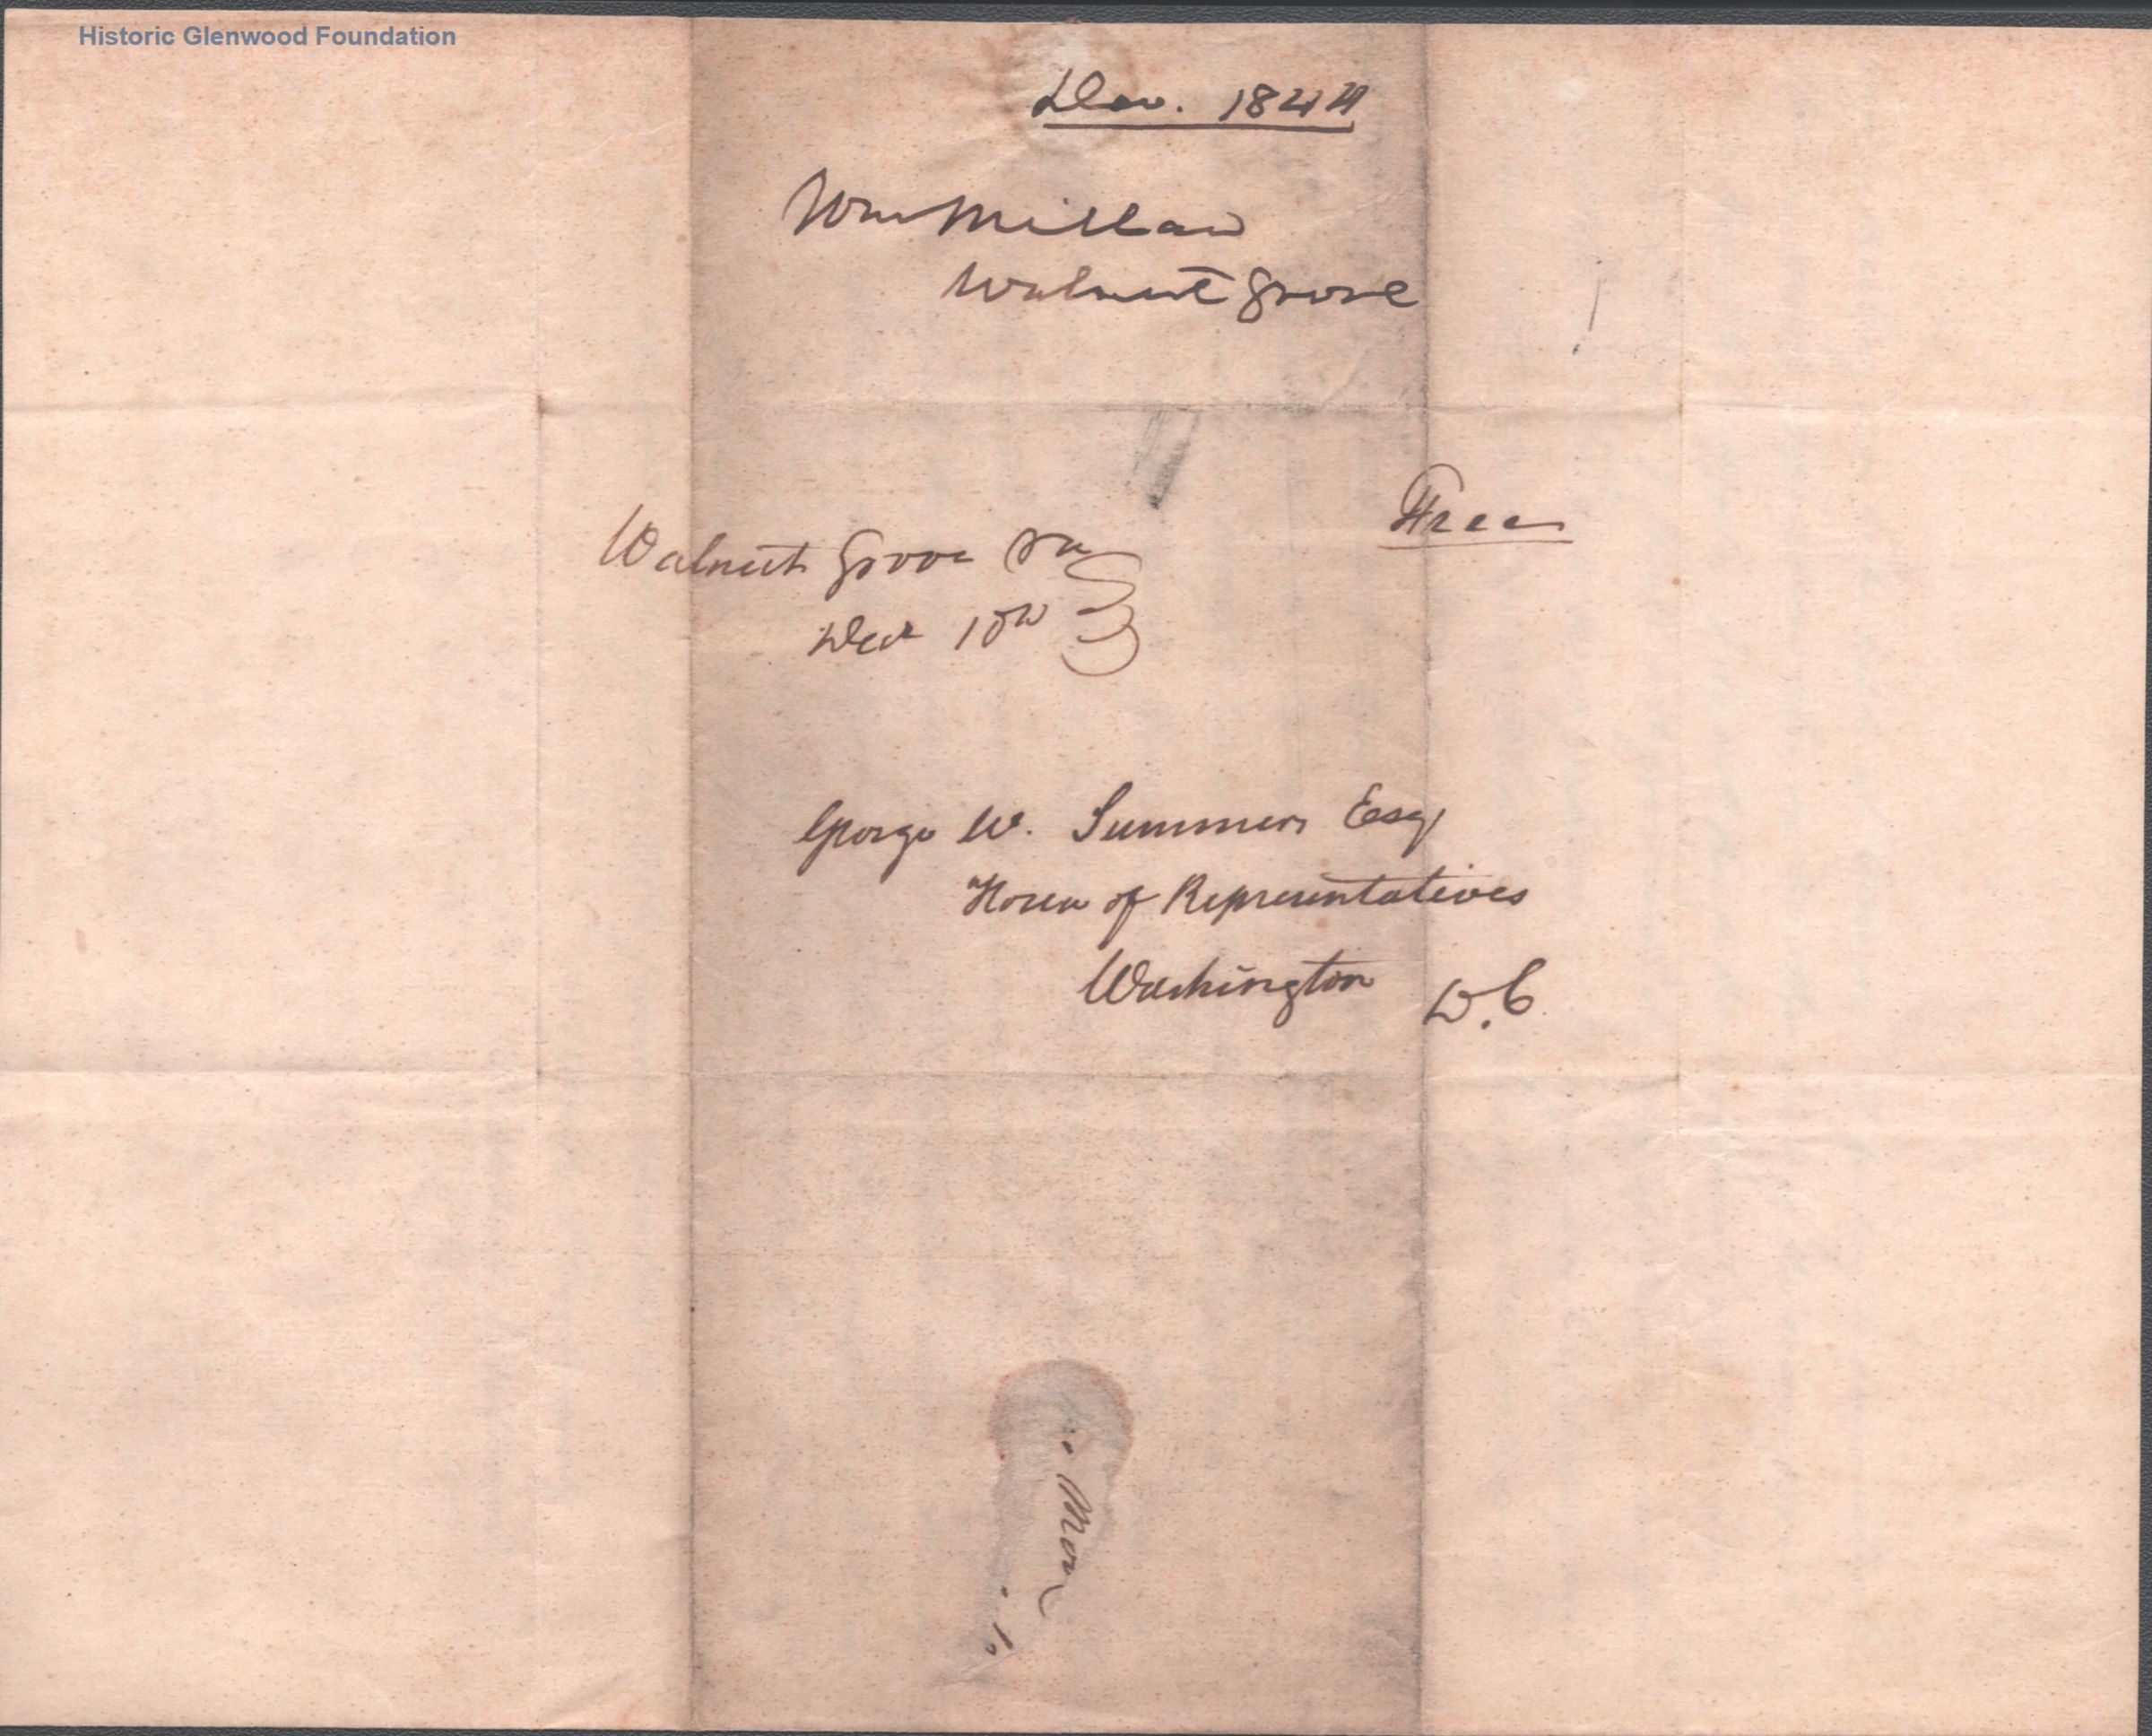 Historic Glenwood Foundation
Dec. 1844
Wm Millan
Walnut Grove
Free
Walnut Grove Va
Dec 10th
George W. Summers Esq
House of Representatives
Washington D.C.